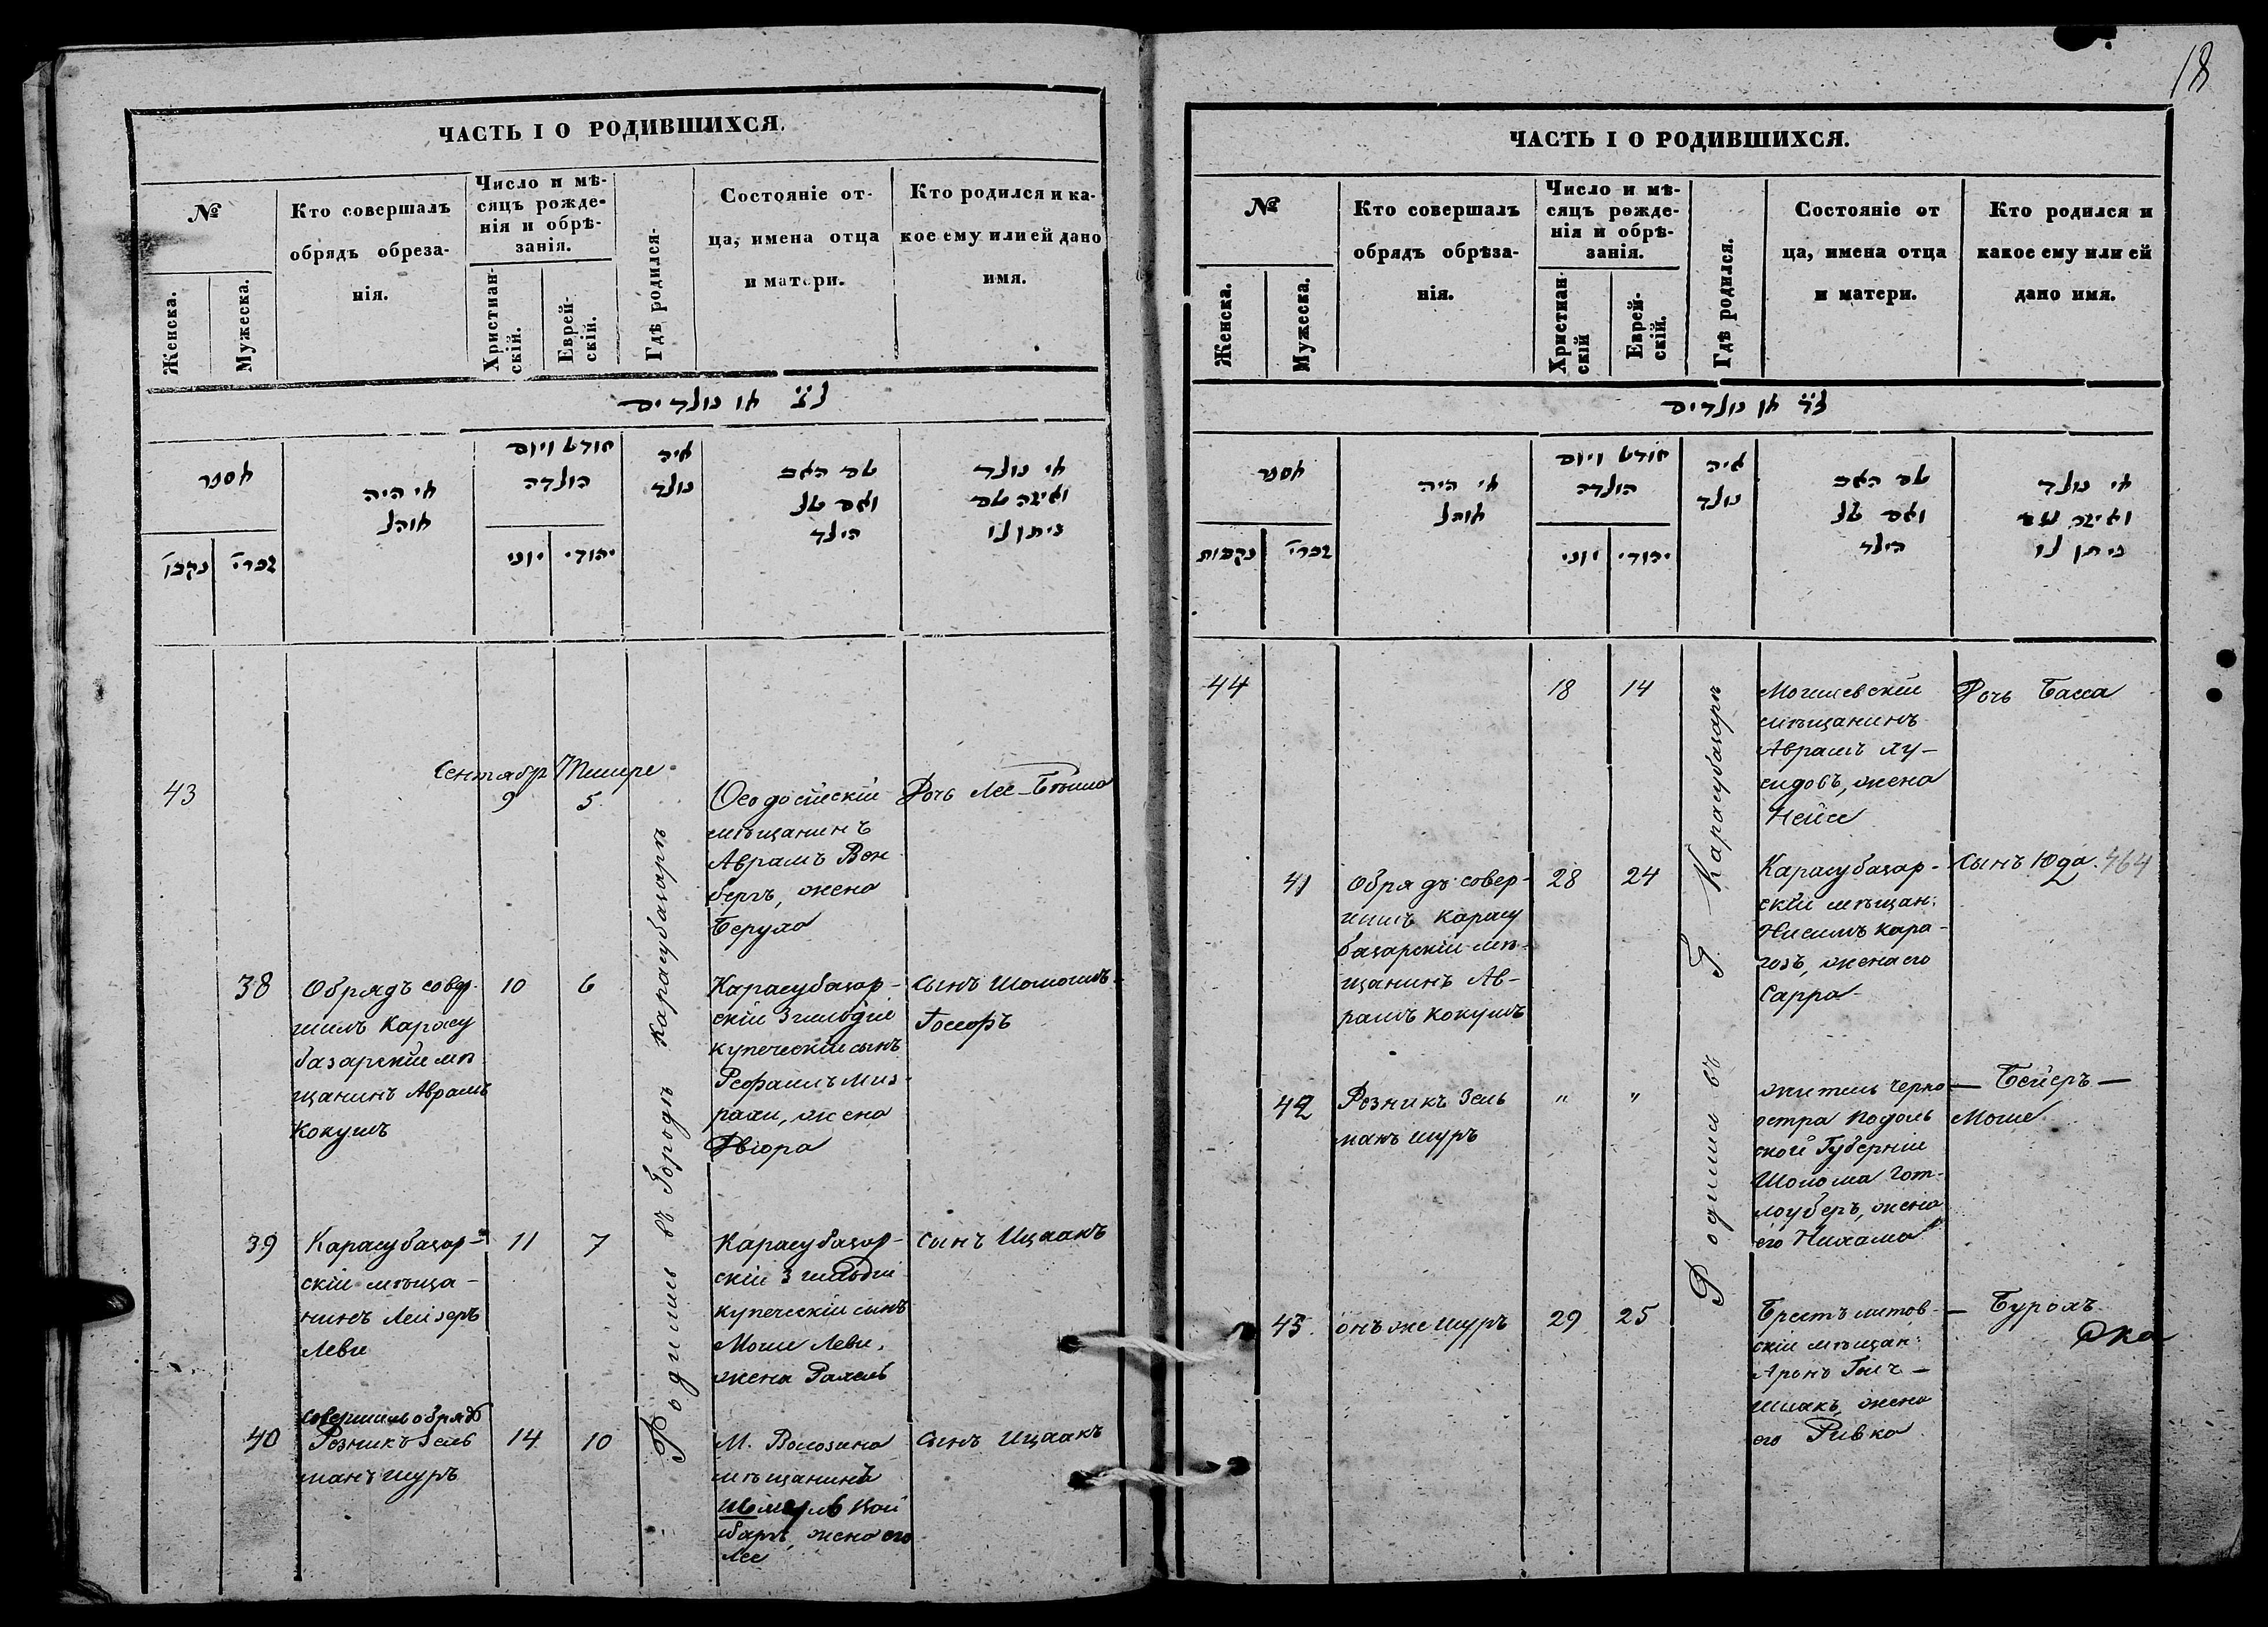 18
ЧАСТЬ I О РОДИВШИХСЯ.
№
Женска.
Мужеска.
Кто совершалъ
обрядъ обреза-
нія.
Число и мѣ-
сяцъ рожде-
нія и обрѣ-
занія.
Христиан-
скій.
Еврей-
скій.
Гдѣ родился.
Состояніе от-
ца, имена отца
и матери.
Кто родился и ка-
кое ему или ей дано
имя.
חלק א מנולדים
מספר
נקבו'
זכרי'
מי היה
מוהל
חודש ויום
הולדה
יוני
יהודי
איה
נולד
שם האב
ואם של
הילד
מי נולד
ואיזה שם
ניתן לו
Сентябр Тишре
43
9
5
Ѳеодосійскій
мѣщанинъ
Аврамъ Вен
бергъ, жена
Беруха
Дочь Лее-Бейла
38
Обрядъ совер
шилъ Карасу
базарскій мѣ
щанинъ Аврамъ
Кокушъ
10
6
Карасубазар-
скій 3 гильдіи
купеческій сынъ
Рефаилъ Миз-
рахи, жена
Двіора
Сынъ Шоломъ-
Іосефъ
39
Карасубазар-
скій мѣща-
нинъ Лейзеръ
Леви
11
7
Карасубазар-
скій 3 гильдіи
купеческій сынъ
Моше Леви,
жена Рахель
Сынъ Ицаакъ
40
Совершилъ обрядъ
Резникъ Зель
манъ Шуръ
14
10
М. Воложина
мѣщанинъ
Шмуль
жена его
Лее
Сынъ Ицаакъ
Родились въ Городѣ Карасубазарѣ
ЧАСТЬ I О РОДИВШИХСЯ.
№
Женска.
Мужеска.
Кто совершалъ
обрядъ обрѣза-
нія.
Число и мѣ-
сяцъ рожде-
нія и обрѣ-
занія.
Христиан-
скій
Еврей-
скій.
Гдѣ родился.
Состояніе от
ца, имена отца
и матери.
Кто родился и
какое ему или ей
дано имя.
חלק א מנולדים
מספר
נקבות
זכרי'
מי היה
מוהל
חודש ויום
הולדה
יוני
יהודי
איה
נולד
שם האב
ואם של
הילד
מי נולד
ואיזה שם
ניתן לו
44
18
14
Могилевскій
мѣщанинъ
Аврамъ Лу-
сидовъ, жена
Нейсе
Дочь Басса
41
Обрядъ совер-
шилъ Карасу
базарскій мѣ-
щанинъ Ав-
рамъ Кокушъ
28
24
Карасубазар-
скій мѣщан:
Нисимъ Кара-
гозъ, жена его
Сарра
Сынъ Юда. 464
42
Резникъ Зель
манъ Шуръ
"
"
житель Черно
остра Подоль
ской Губерніи
Шолома Гот-
лоуберъ, жена
его Нихама
— Бейеръ —
Моше
43.
онъ же Шуръ
29
25
Брестъ литов-
скій мѣщан:
Аронъ Гольч-
шлакъ, жена
его Ривка
— Бурохъ
Родились въ Г. Карасубазарѣ